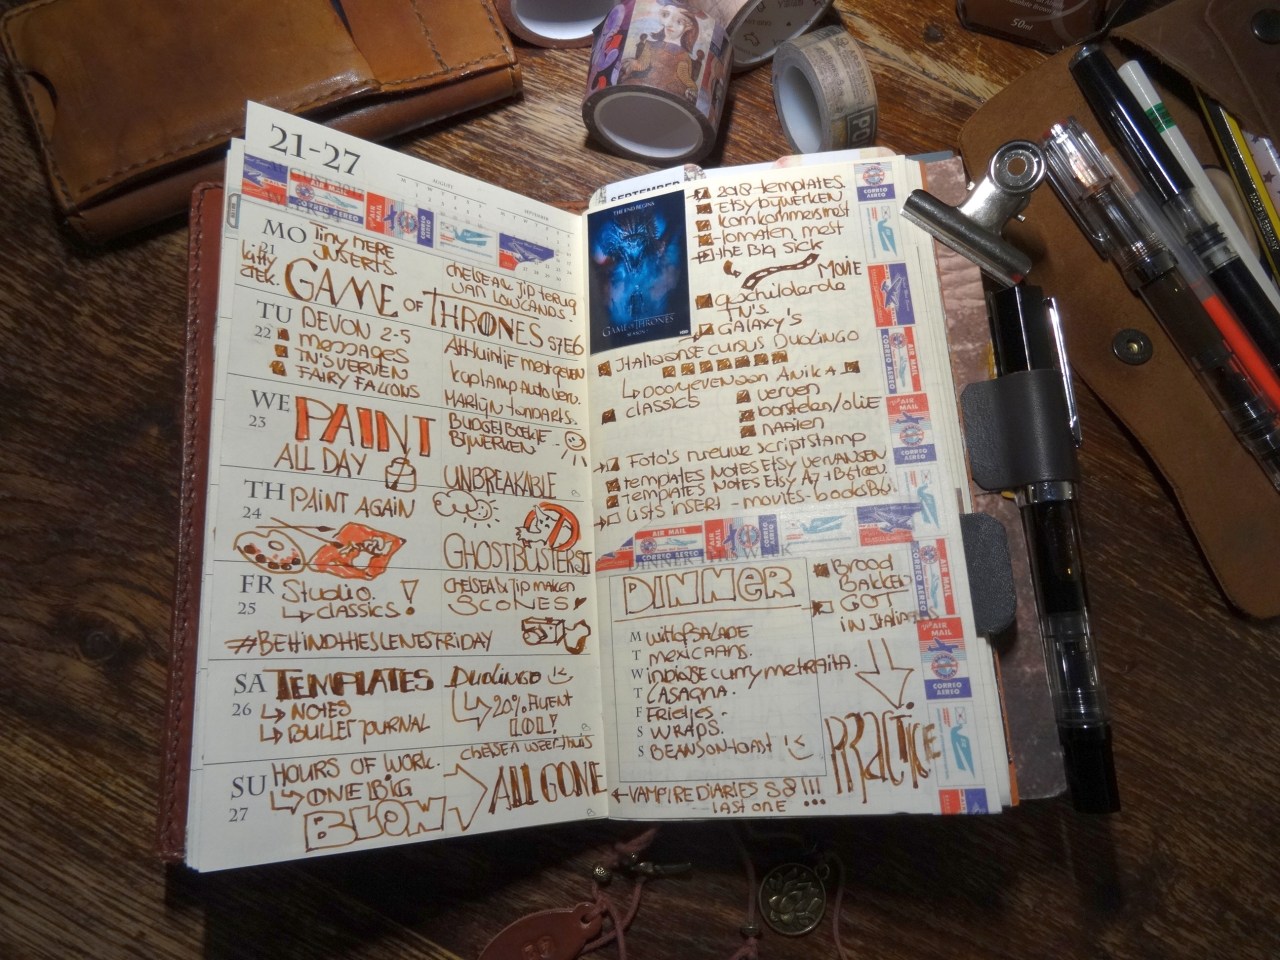 21-27
AUGUST
SEPTEMBER
MO
21
Tiny HERE
INSERTS.
kitty
ZIEK.
GAME OF THRONES S7E6
CHELSEA & Jip terug
VAN LOWLANDS!
TU
22
DEVON 2-5
MESSAGES
TN'S VERVEN
FAIRY FALLONS
Achtertuintje mest geven
koplamp auto verv.
MARTIJN tandarts.
WE
23
PAINT
ALL DAY
BUDGETBOEKJE
BIJWERKEN
UNBREAKABLE
TH
24
PAINT AGAIN
GHOSTBUSTERS II
FR
25
Studio.
CLASSICS!
#BEHINDTHESCENESFRIDAY
CHELSEA & Jip MAKEN
SCONES!
SA
26
TEMPLATES
NOTES
BULLET JOURNAL
Duolingo
20% FLUENT
LOL!
SU
27
HOURS OF WORK.
ONE BIG
BLOW
CHELSEA WEER THUIS
ALL GONE
SEPTEMBER
THE END BEGINS
GAME OF THRONES
2018-templates
ETSY BIJWERKEN
komkommers mest
tomaten mest
the Big Sick
MOVIE
geschilderde
TN'S.
GALAXY'S
Italiaanse cursus Duolingo
Doorgeven aan Anika
CLASSICS
verven
borstelen/olie
naaien
Foto's nieuwe scriptstamp
templates Notes Etsy VERVANGEN
templates Notes Etsy A7 + B6 treu
Lists insert - movies - books Bu.
AIR MAIL
CORREO AEREO
DINNER
M witlofSALADE
T mexicaans.
W indiase curry met raita.
T LASAGNA.
F Frietjes.
S WRAPS.
S BEANS ON toast
Brood
BAKKEN
GOT
IN Italian
PRACTICE
VAMPIRE DIARIES S8!!!
LAST ONE
50ml